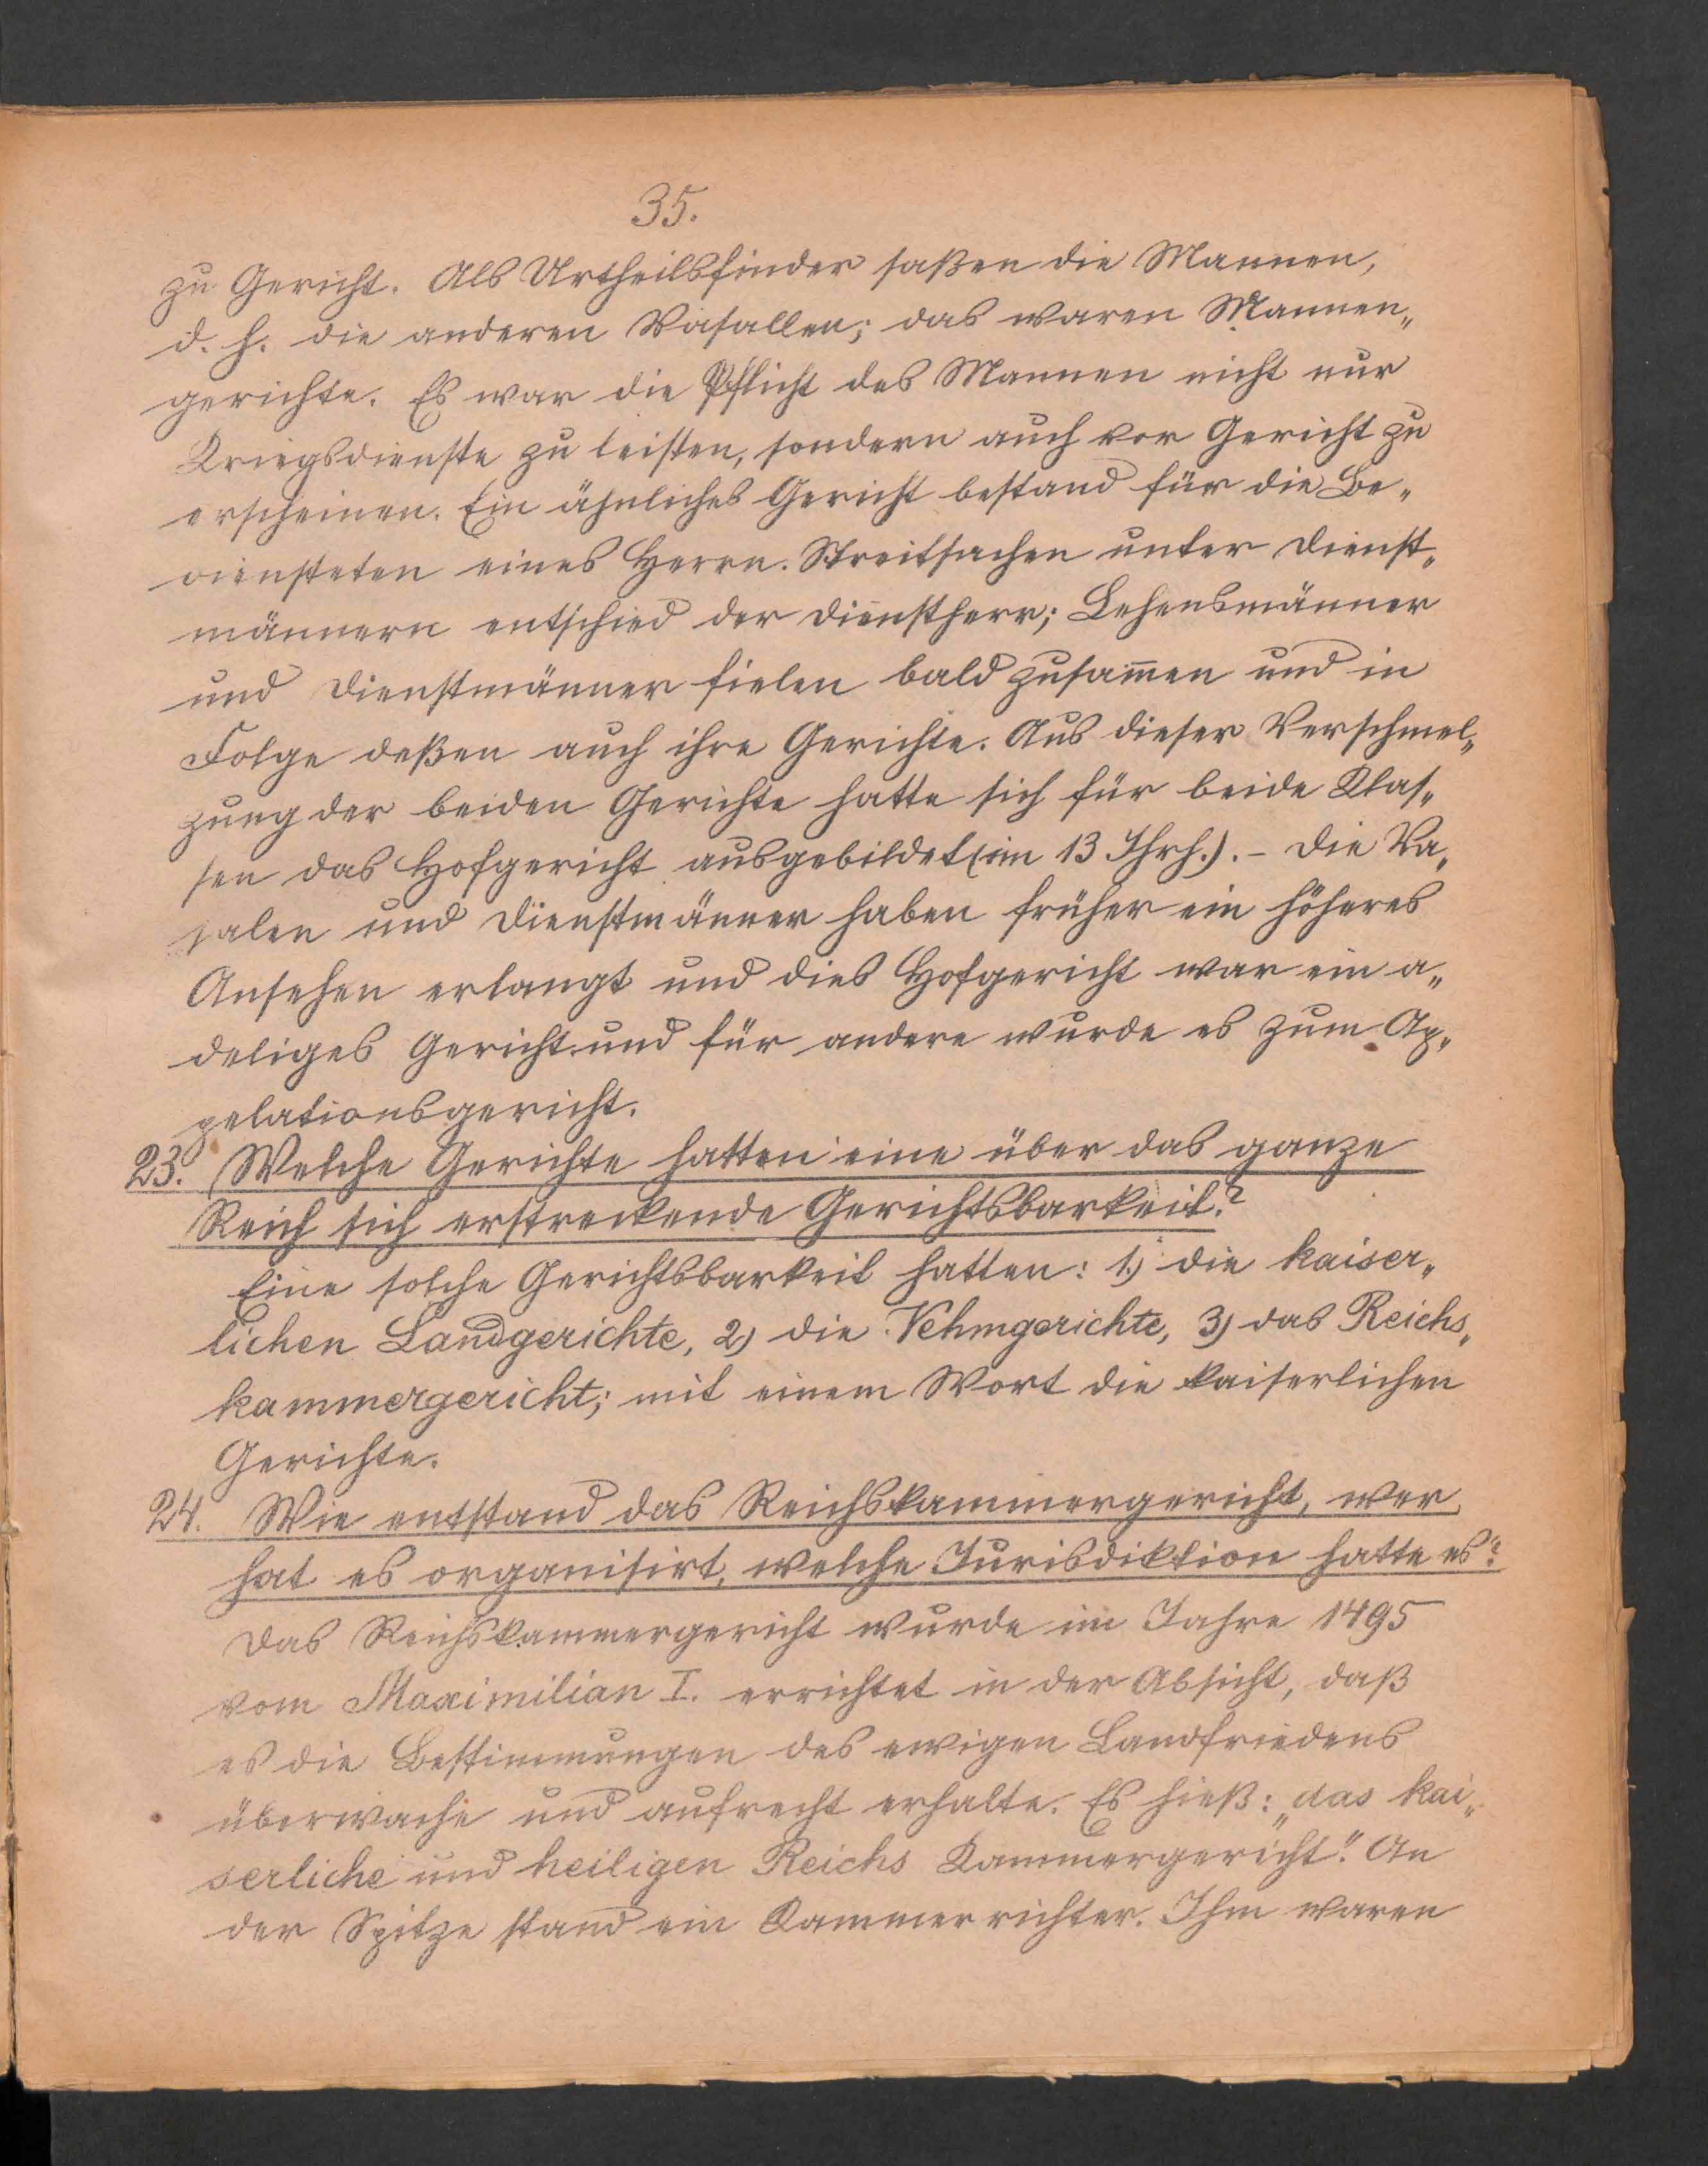 35.
zu Gericht. Als Urtheilsfinder saßen die Mannen,
d. h. die anderen Vasallen; das waren Mannen„
gerichte. Es war die Pflicht des Mannen nicht nur
Kriegsdienste zu leisten, sondern auch vor Gericht zu
erscheinen. Ein ähnliches Gericht bestand für die Be„
diensteten eines Herrn. Streitsachen unter Dienst„
männern entschied der Dienstherr; Lehensmänner
und Dienstmänner fielen bald zusam̅en und in
Folge deßen auch ihre Gerichte. Aus dieser Verschmel„
zung der beiden Gerichte hatte sich für beide Klas„
sen das Hofgericht ausgebildet (im 13 Jhrh.). – Die Va„
salen und Dienstmänner haben früher ein höheres
Ansehen erlangt und dies Hofgericht war ein a„
deliges Gericht und für andere wurde es zum Ap„
pelationsgericht.
23. Welche Gerichte hatten eine über das ganze
Reich sich erstreckende Gerichtsbarkeit?
Eine solche Gerichtsbarkeit hatten: 1.) die kaiser„
lichen Landgerichte, 2) die Vehmgerichte, 3) das Reichs„
kammergericht; mit einem Wort die kaiserlichen
Gerichte.
24. Wie entstand das Reichskammergericht, wer
hat es organisirt, welche Jurisdiktion hatte es?
Das Reichskammergericht wurde im Jahre 1495
vom Maximilian I. errichtet in der Absicht, daß
es die Bestimmungen des ewigen Landfriedens
überwache und aufrecht erhalte. Es hieß: „das kai„
serliche und heiligen Reichs Kammergericht". An
der Spitze stand ein Kammerrichter. Ihm waren